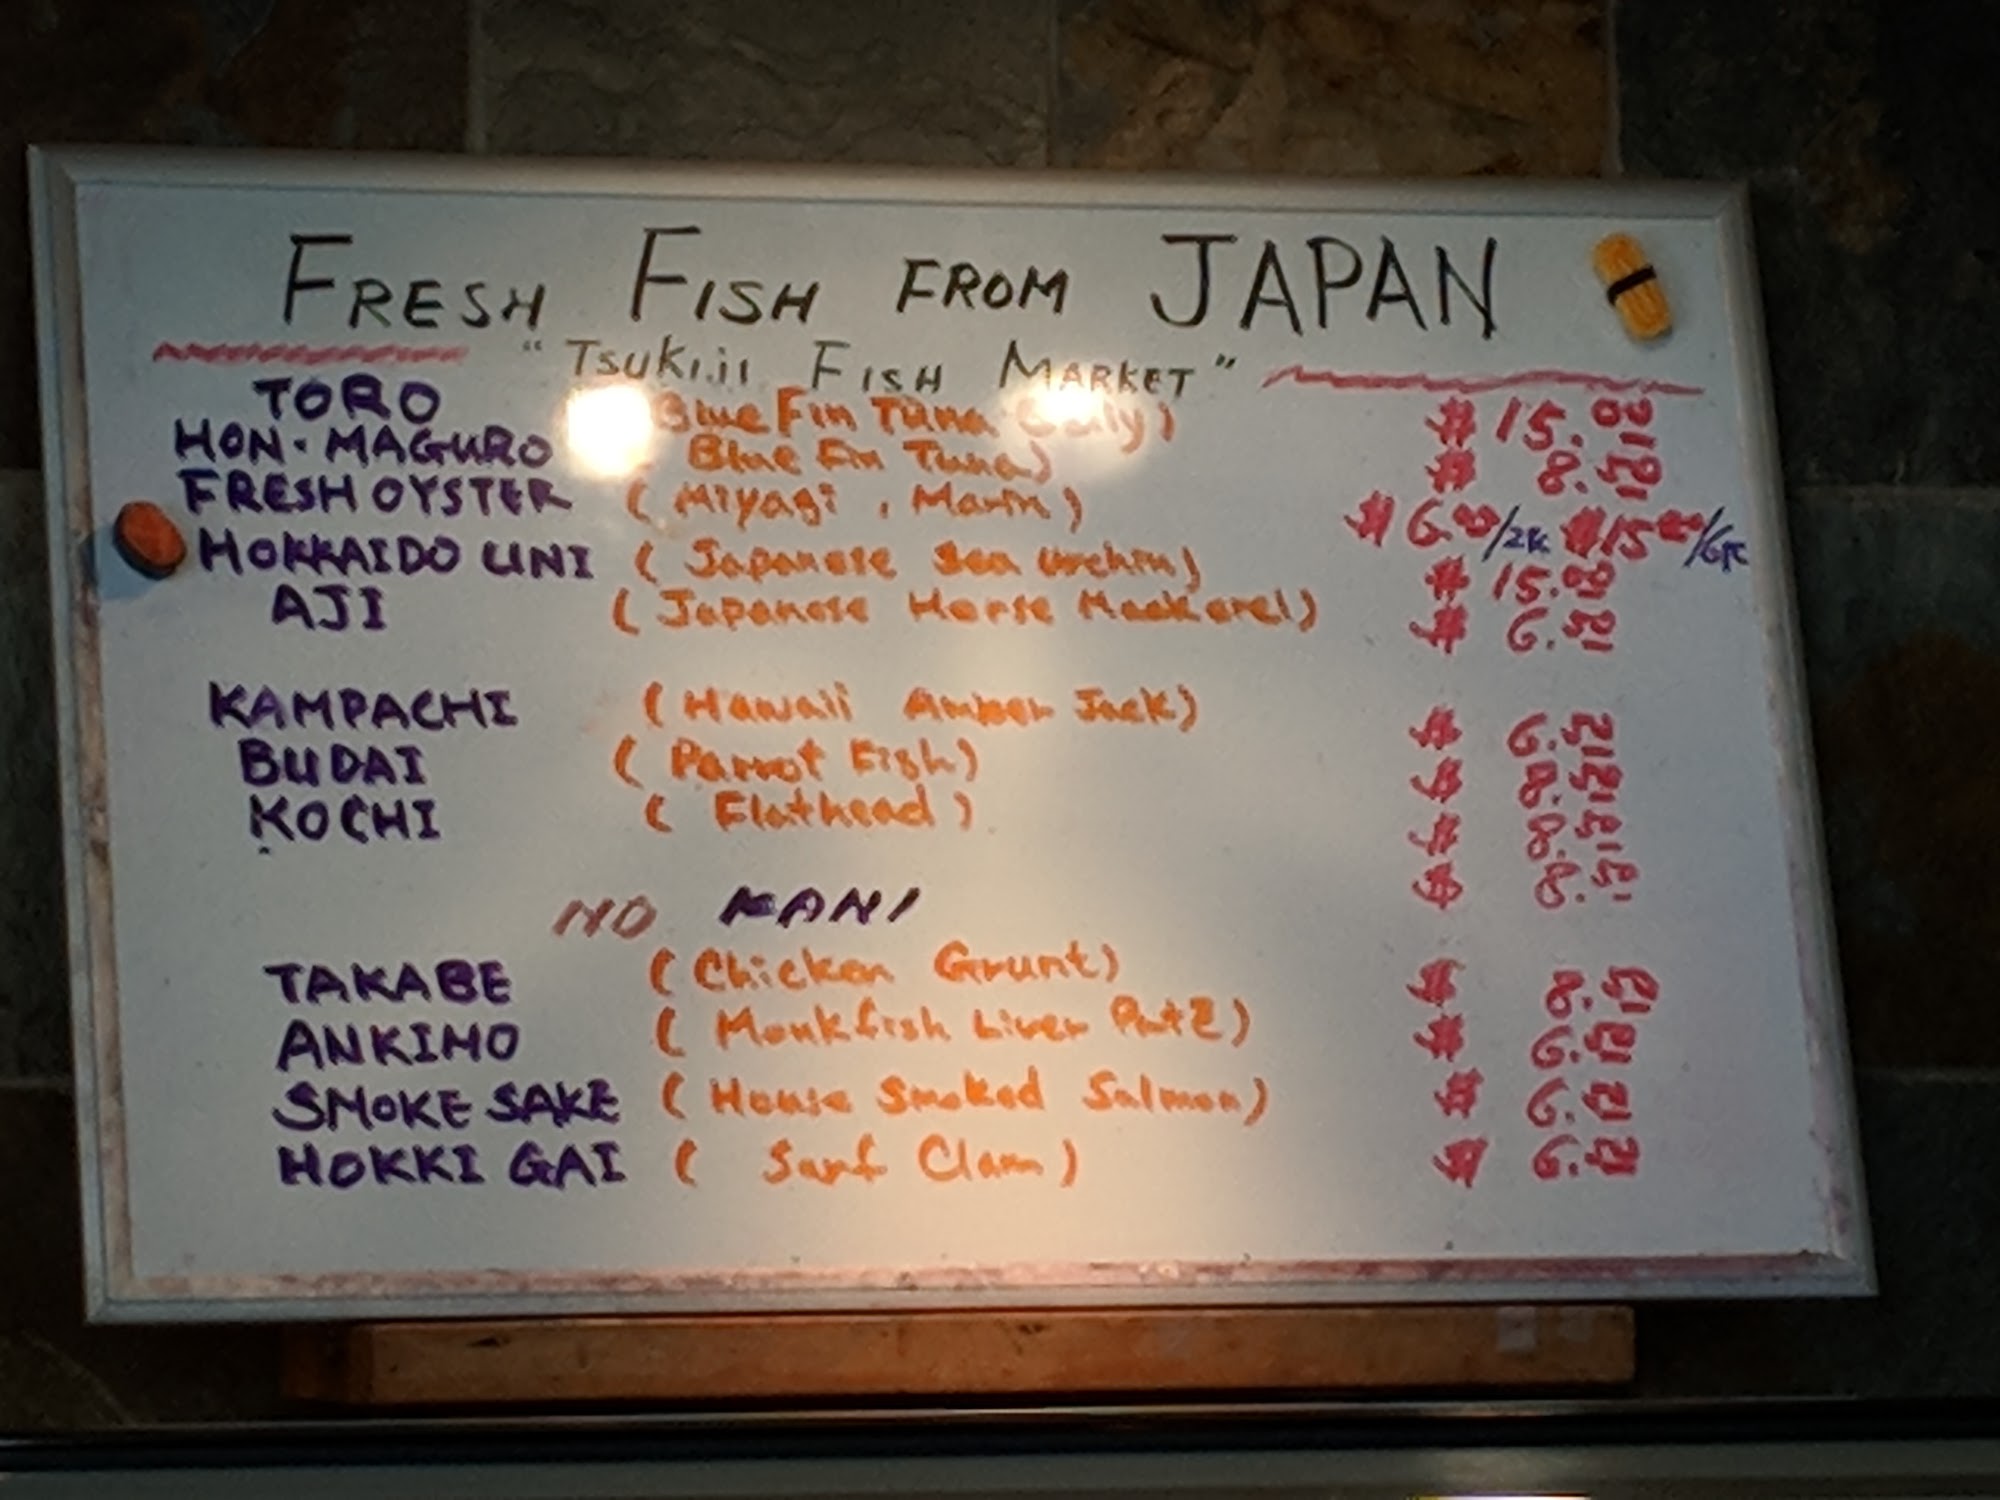 FRESH FISH FROM JAPAN
"TSUKIJI FISH MARKET"
TORO Blue Fin Tuna Belly) $15.00
HON·MAGURO Blue Fin Tuna) $8.
FRESH OYSTER (Miyagi, Marin) $6.00/2PC $15.00/6PC
HOKKAIDO UNI (Japanese Sea Urchin) $15.00
AJI (Japanese Horse Mackerel) $6.
KAMPACHI (Hawaii Amber Jack) $6.
BUDAI (Parrot Fish) $8.
KOCHI (Flathead) $8.
$8.
NO KANI
TAKABE (Chicken Grunt) $8.
ANKIMO (Monkfish Liver Pate) $6.
SMOKE SAKE (House Smoked Salmon) $6.
HOKKI GAI (Surf Clam) $6.